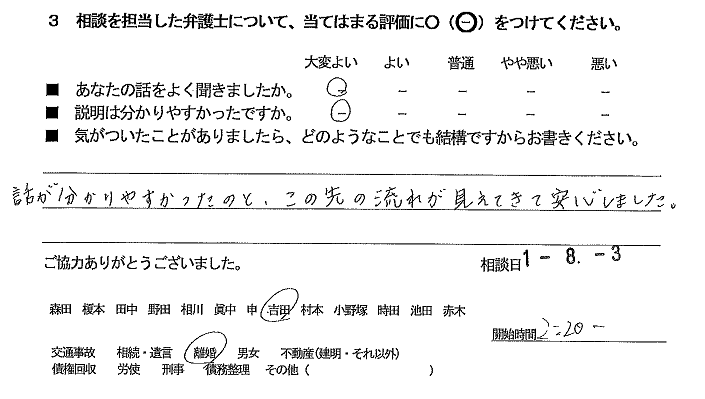 3 相談を担当した弁護士について、当てはまる評価に〇(㊀)をつけてください。
大変よい よい 普通 やや悪い 悪い
■ あなたの話をよく聞きましたか。 － － － － －
■ 説明は分かりやすかったですか。 － － － － －
■ 気がついたことがありましたら、どのようなことでも結構ですからお書きください。
話が分かりやすかったのと、この先の流れが見えてきて安心しました。
ご協力ありがとうございました。 相談日 1 - 8. - 3
森田 榎本 田中 野田 相川 眞中 申 吉田 村本 小野塚 時田 池田 赤木
開始時間 2:20 -
交通事故 相続・遺言 離婚 男女 不動産(建明・それ以外)
債権回収 労使 刑事 債務整理 その他( )